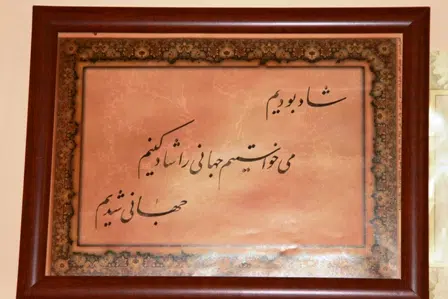 شاد بودیم
می خواستیم جهانی را شاد کنیم
جهانی شدیم